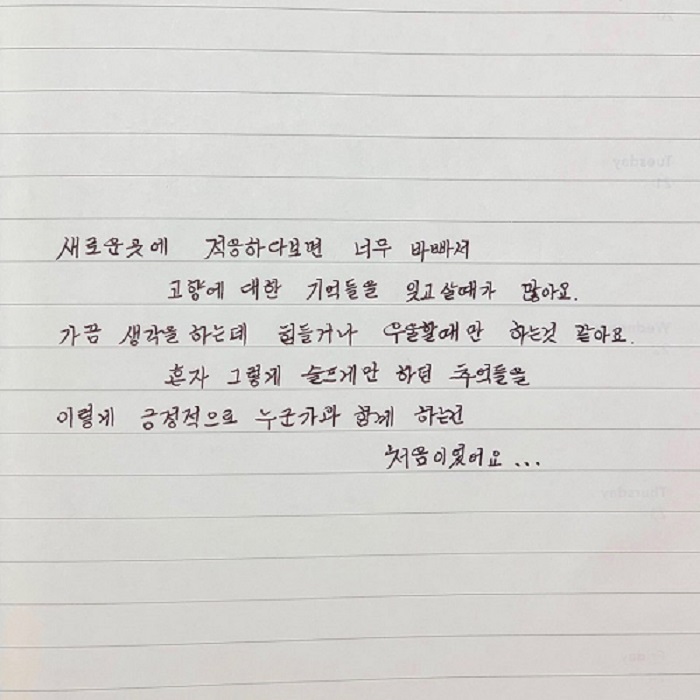 새로운곳에 적응하다보면 너무 바빠서
고향에 대한 기억들을 잊고살때가 많아요.
가끔 생각을 하는데 힘들거나 우울할때만 하는것 같아요.
혼자 그렇게 슬프게만 하던 추억들을
이렇게 긍정적으로 누군가과 함께 하는건
처음이였어요 ...
Tuesday
21
Thursday
23
Friday